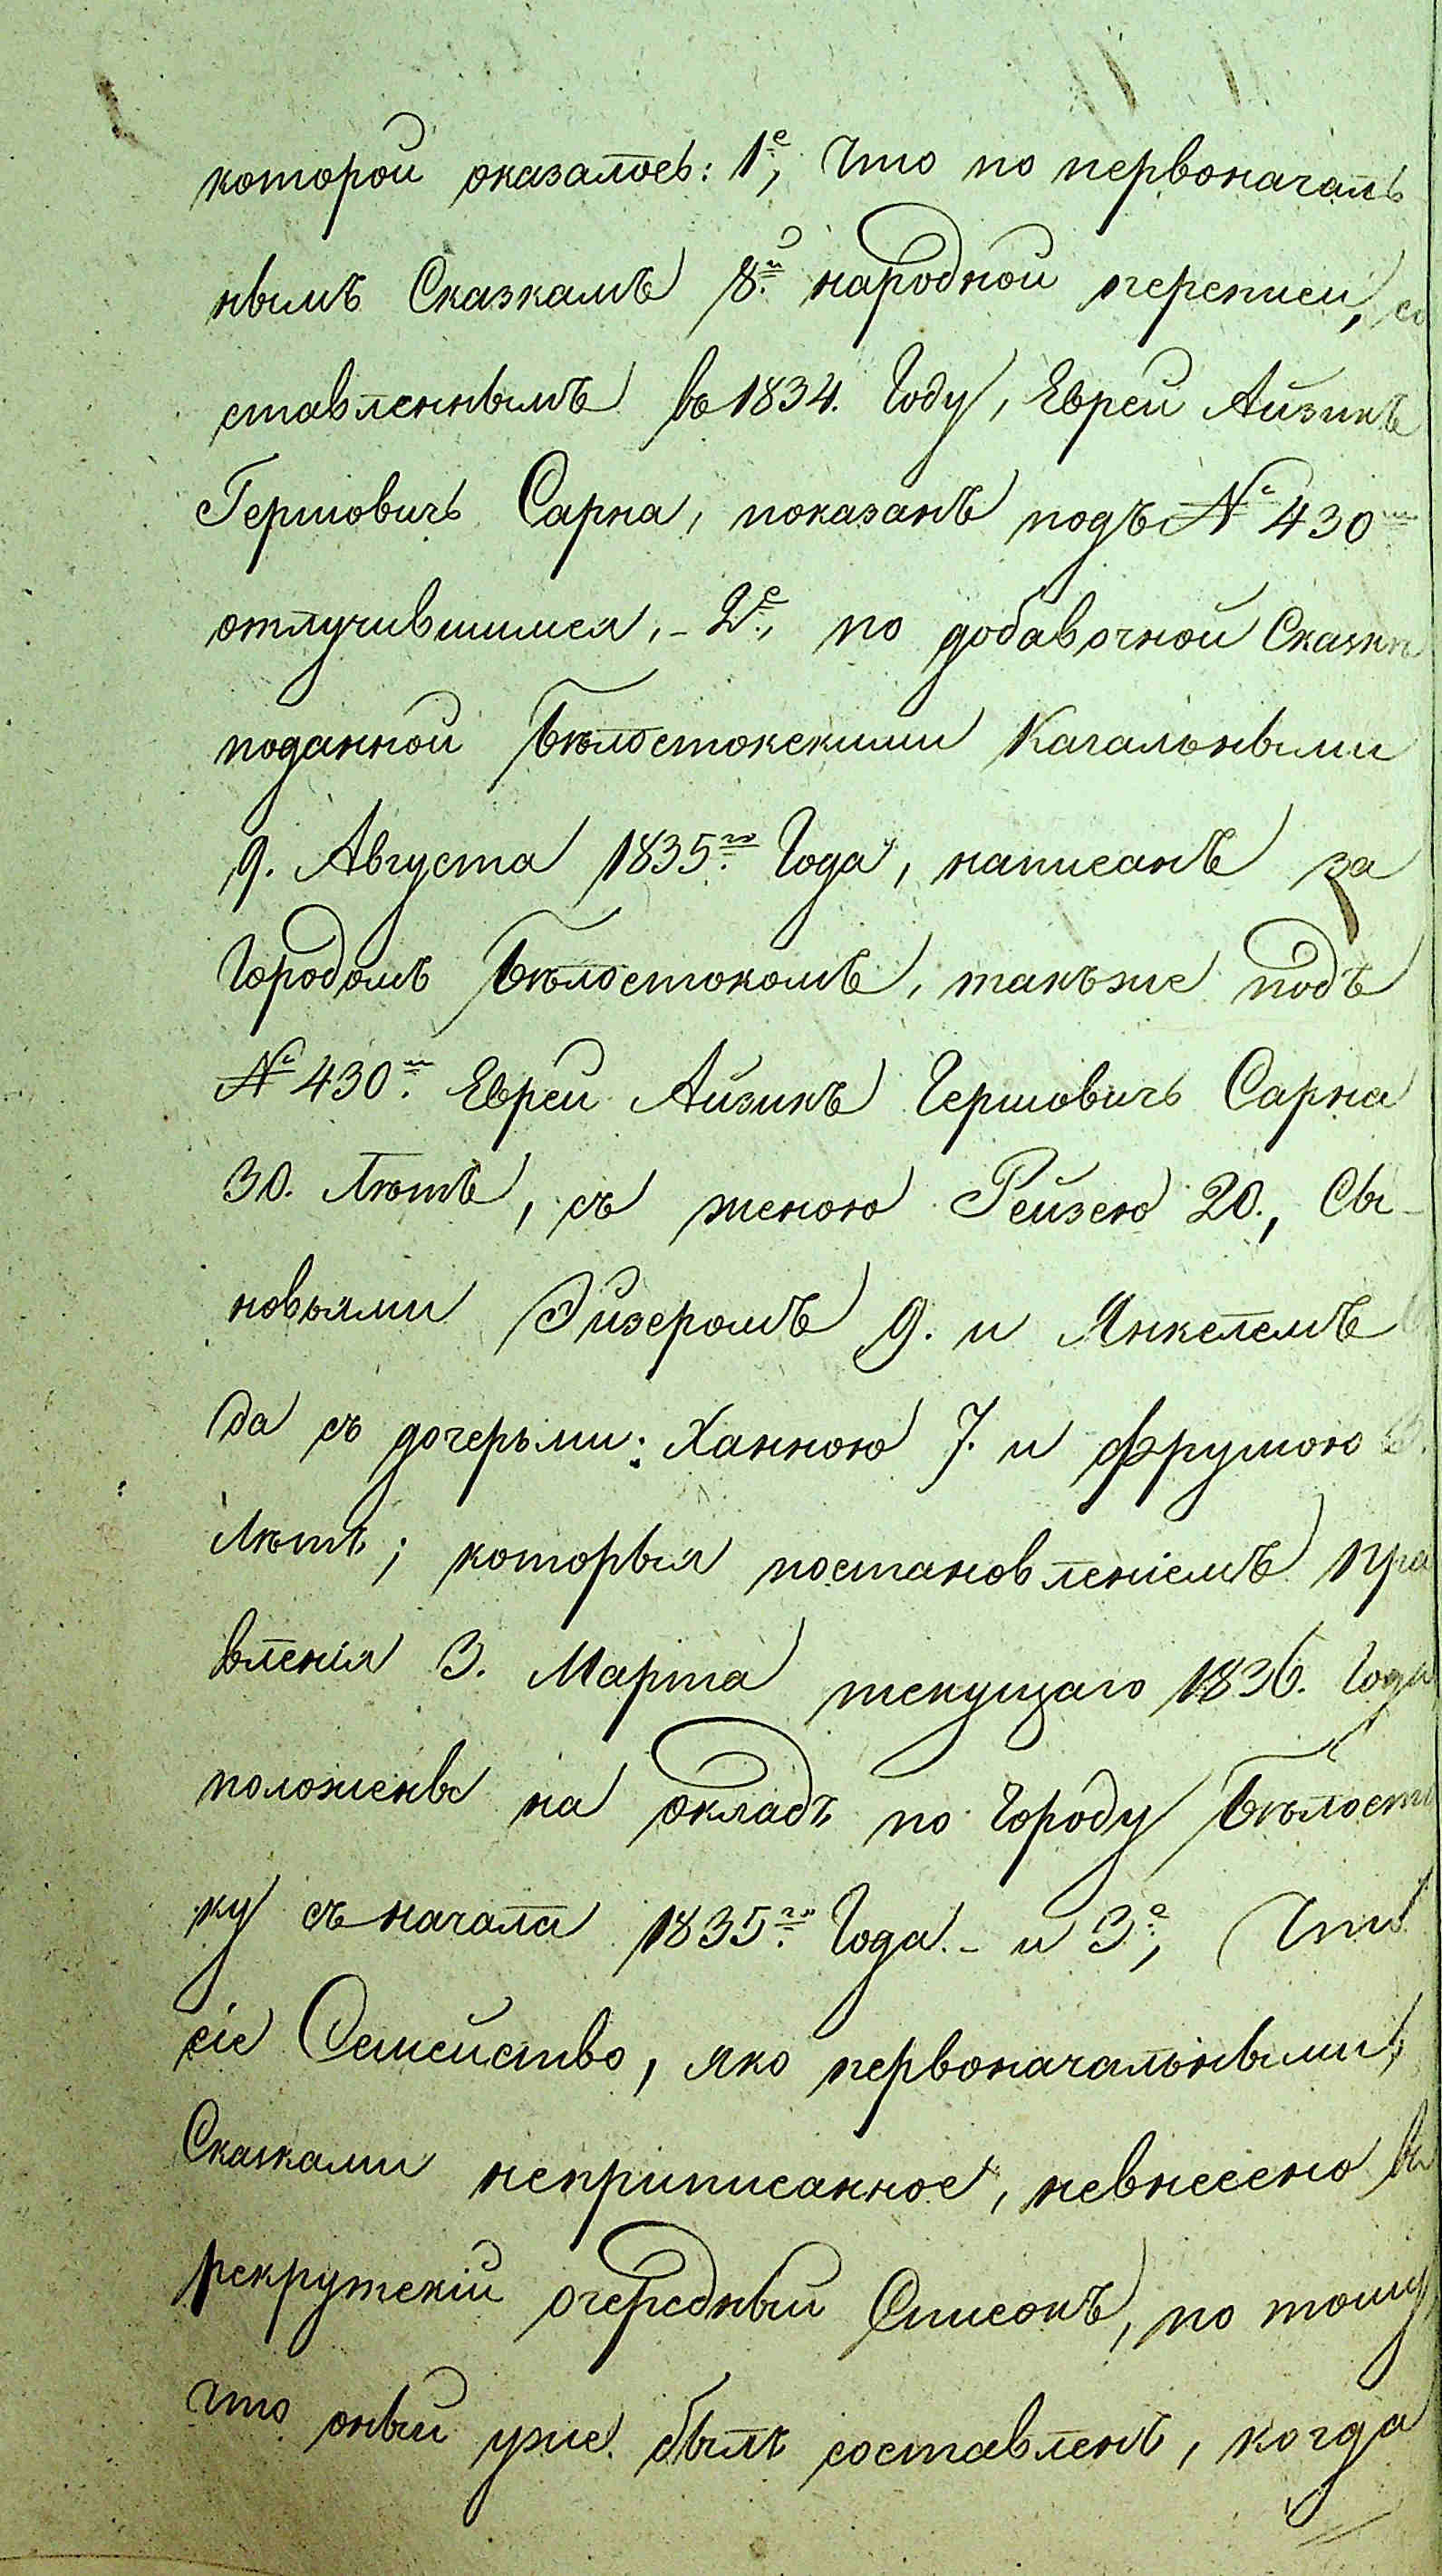 которой оказалось: 1е, Что по первоначаль
нымъ Сказкамъ 8й народной переписи, со
ставленнымъ въ 1834. Году, Еврей Айзикъ
Гершовичъ Сарна, показанъ подъ № 430м
отлучившимся, - 2е, по добавочной Сказки
поданной Бѣлостокскими Кагальными
9. Августа 1835го Года, написанъ за
Городомъ Бѣлостокомъ, такъже подъ
№ 430м Еврей Айзикъ Гершовичъ Сарна
30. Лѣтъ, съ женою Рейзею 20., Сы-
новьями Эйзеромъ 9. и Янкелемъ
да съ дочерьми: Ханною 7. и Фрумою
Лѣтъ; которыя постановленіемъ Пра
вленія 3. Марта текущаго 1836. Года
положены на окладъ по Городу Бѣлосто
ку съ начала 1835го Года. - и 3е, Что
сіе Семейство, яко первоначальными
Сказками неприписанное, невнесено въ
рекрутскій очередный Списокъ, по тому
что оный уже былъ составленъ, когда